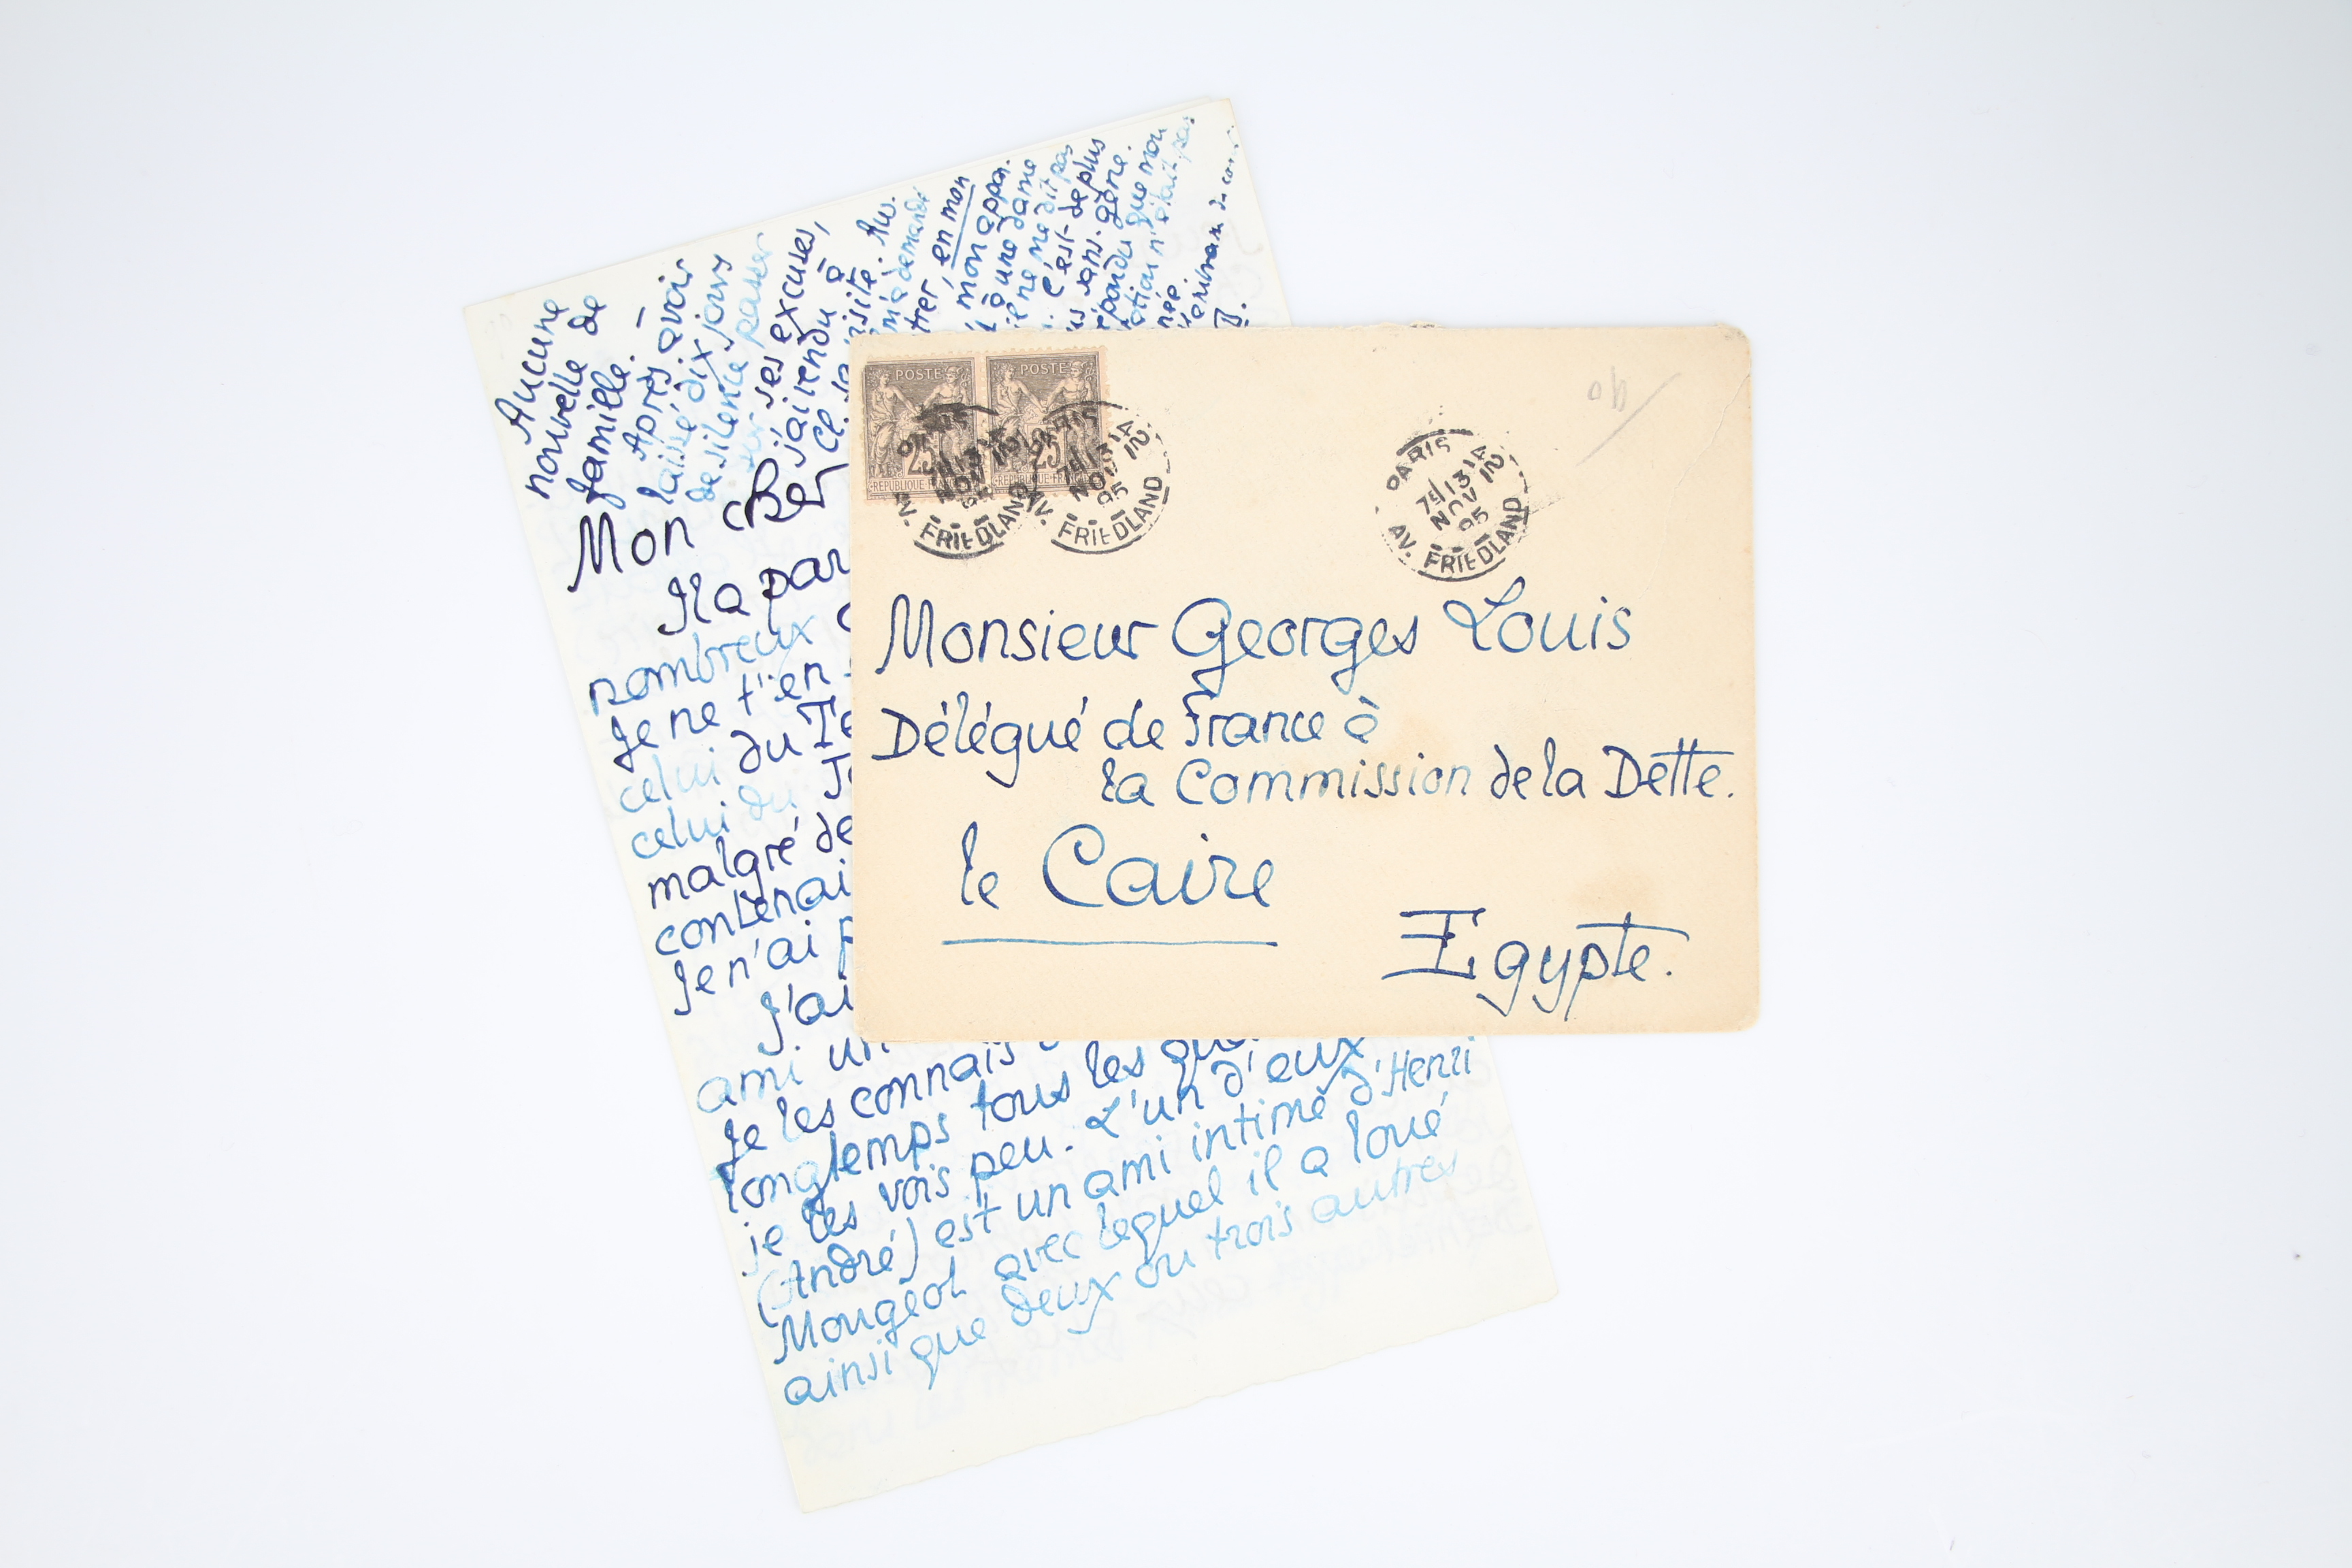 Aucune
nouvelle de
famille. —
Après avoir
laissé dix jours
de silence passer
sur ses excuses,
j'ai rendu à
Cl. la visite. Au.
m'a demandé
en mon
mon appar.
à une dame
il ne me dit pas
c'est de plus
sans gêne.
que mon
n'était pas
née.
Mon cher
Il a par
nombreux
Je ne t'en
celui du Te
celui du J
malgré de
contenai
Je n'ai p
J'ai
ami un
Je les connais
longtemps tous les qua
je les vois peu. L'un d'eux
(André) est un ami intime d'Henri
Mougeot avec lequel il a loué
ainsi que deux ou trois autres
POSTE POSTE
25 25
REPUBLIQUE FR REPUBLIQUE FRAN
PARIS
7E/13 14
NOV 12
95
AV. FRIEDLAND
PARIS
7E/13 14
NOV 12
95
AV. FRIEDLAND
PARIS
7E/13 14
NOV 12
95
AV. FRIEDLAND
Monsieur Georges Louis
Délégué de France à
la Commission de la Dette.
le Caire
Egypte.